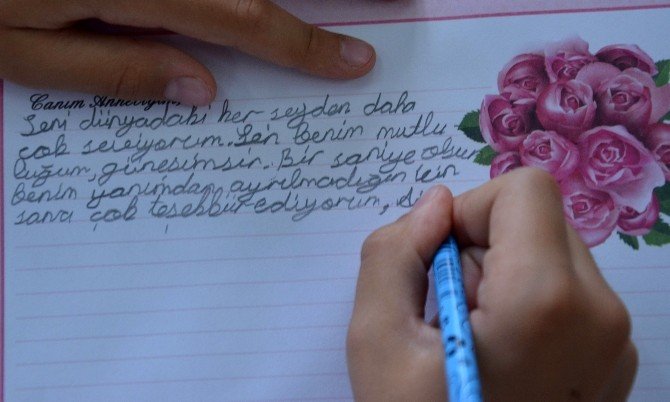 Canım Anneciğim,
Seni dünyadaki her şeyden daha
çok seviyorum. Sen benim mutlu
luğum, güneşimsin. Bir saniye olsun
benim yanımdan ayrılmadığın için
sana çok teşekbür ediyorum,